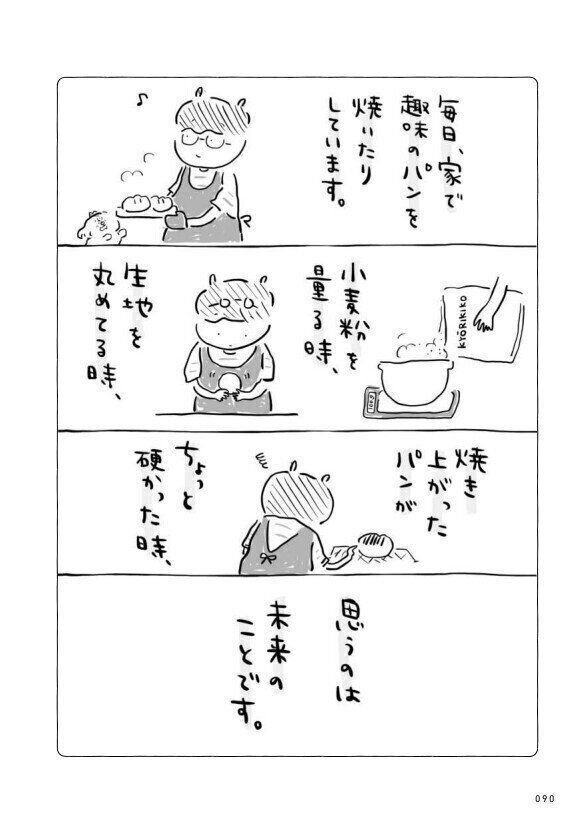 毎日、家で
趣味のパンを
焼いたり
しています。
小麦粉を
量る時、
KYŌRIKIKO
生地を
丸めてる時、
焼き
上がった
パンが
ちょっと
硬かった時、
思うのは
未来の
ことです。
090